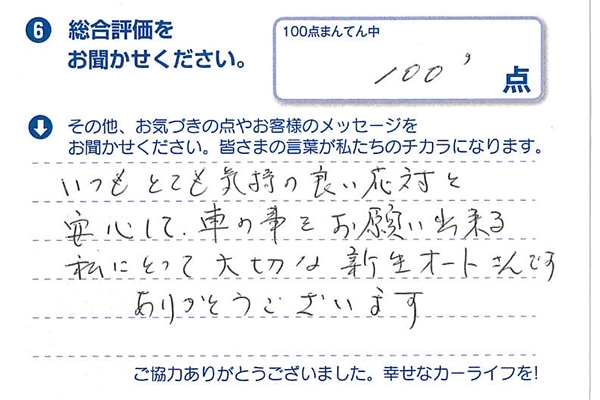 6 総合評価を
お聞かせください。
100点まんてん中
100点
その他、お気づきの点やお客様のメッセージを
お聞かせください。皆さまの言葉が私たちのチカラになります。
いつもとても気持の良い応対と
安心して、車の事をお願い出来る
私にとって大切な新生オートさんです
ありがとうございます
ご協力ありがとうございました。幸せなカーライフを!